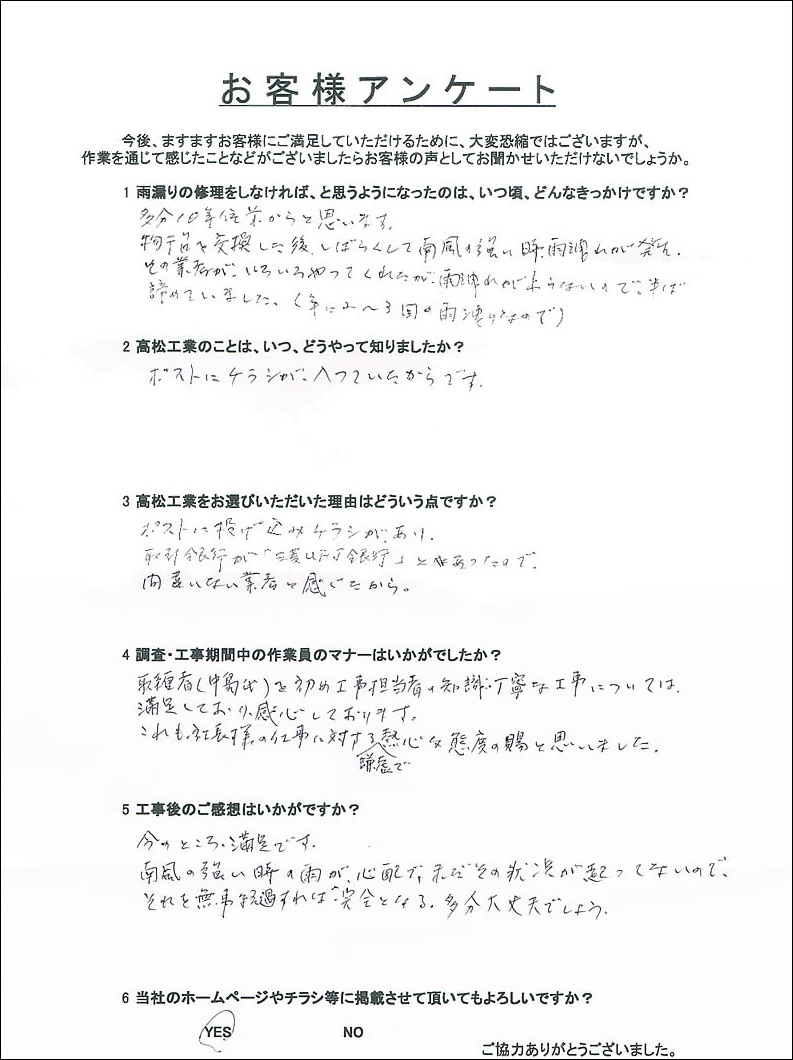 お客様アンケート
今後、ますますお客様にご満足していただけるために、大変恐縮ではございますが、
作業を通じて感じたことなどがございましたらお客様の声としてお聞かせいただけないでしょうか。
1 雨漏りの修理をしなければ、と思うようになったのは、いつ頃、どんなきっかけですか？
多分10年位前からと思います。
物干台を交換した後、しばらくして南風の強い時、雨漏れが発生。
その業者が、いろいろやってくれたが、雨漏れが止らないので、半ば
諦めていました、（年に2～3回の雨漏りなので）
2 高松工業のことは、いつ、どうやって知りましたか？
ポストにチラシが、入っていたからです。
3 高松工業をお選びいただいた理由はどういう点ですか？
ポストに投げ込みチラシがあり、
取引銀行が「三菱UFJ銀行」とあったので、
間違いない業者と感じたから。
4 調査・工事期間中の作業員のマナーはいかがでしたか？
取締者（中島氏）を初め工事担当者の知識・丁寧な工事については、
満足しており、感心しております。
これも、社長様の仕事に対する熱心な態度の賜と思いました。
謙虚で
5 工事後のご感想はいかがですか？
今のところ、満足です。
南風の強い時の雨が、心配で、未だその状況が起ってないので、
それを無事経過すれば、完全となる。多分大丈夫でしょう。
6 当社のホームページやチラシ等に掲載させて頂いてもよろしいですか？
YES NO
ご協力ありがとうございました。